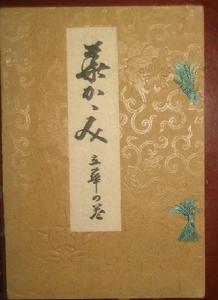 華かゝみ
立華の巻